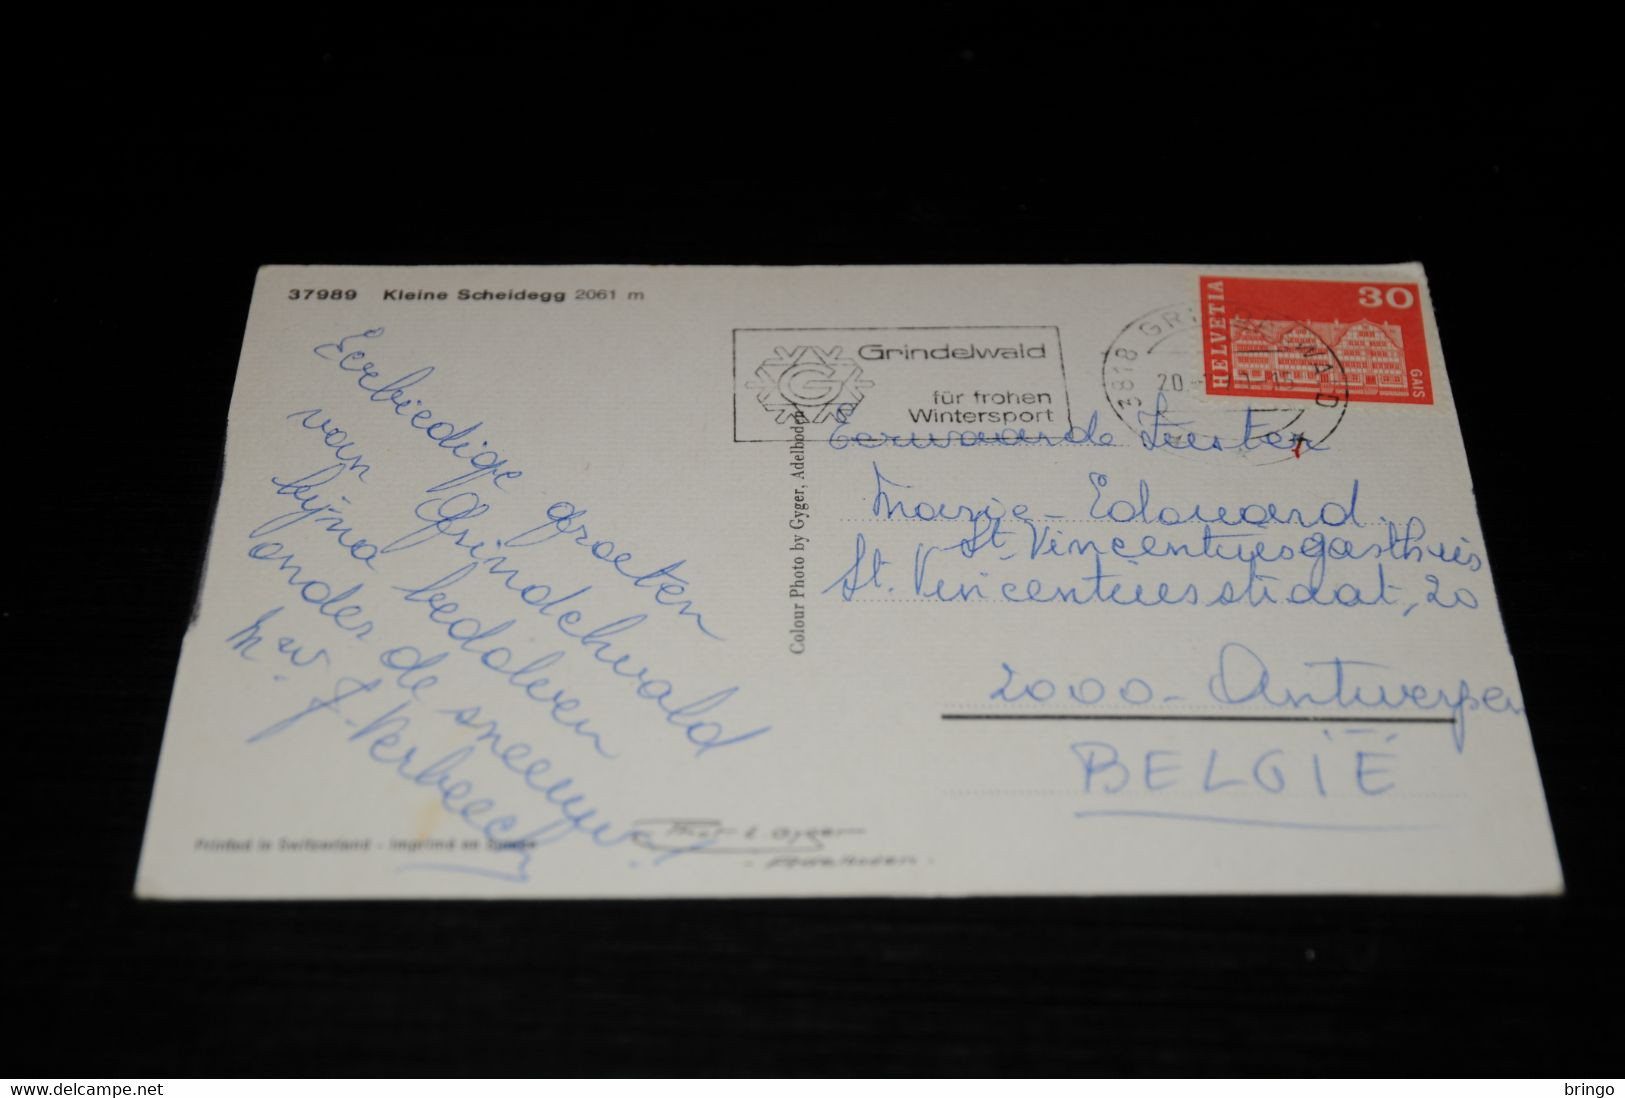 37989 Kleine Scheidegg 2061 m
Eerbiedige groeten
van Grindelwald
bijna bedolven
onder de sneeuw!
Mw. J. Verbeeck
Printed in Switzerland - Imprimé en Suisse
Colour Photo by Gyger, Adelboden
Phot. E. Gyger
Adelboden
Grindelwald
für frohen
Wintersport
G
3818 GRINDELWALD
20.
HELVETIA
30
GAIS
Eerwaarde Zuster
Marie-Edouard.
St. Vincentiusgasthuis
St. Vincentiusstraat, 20
2000 - Antwerpen
BELGIË
www.delcampe.net
bringo